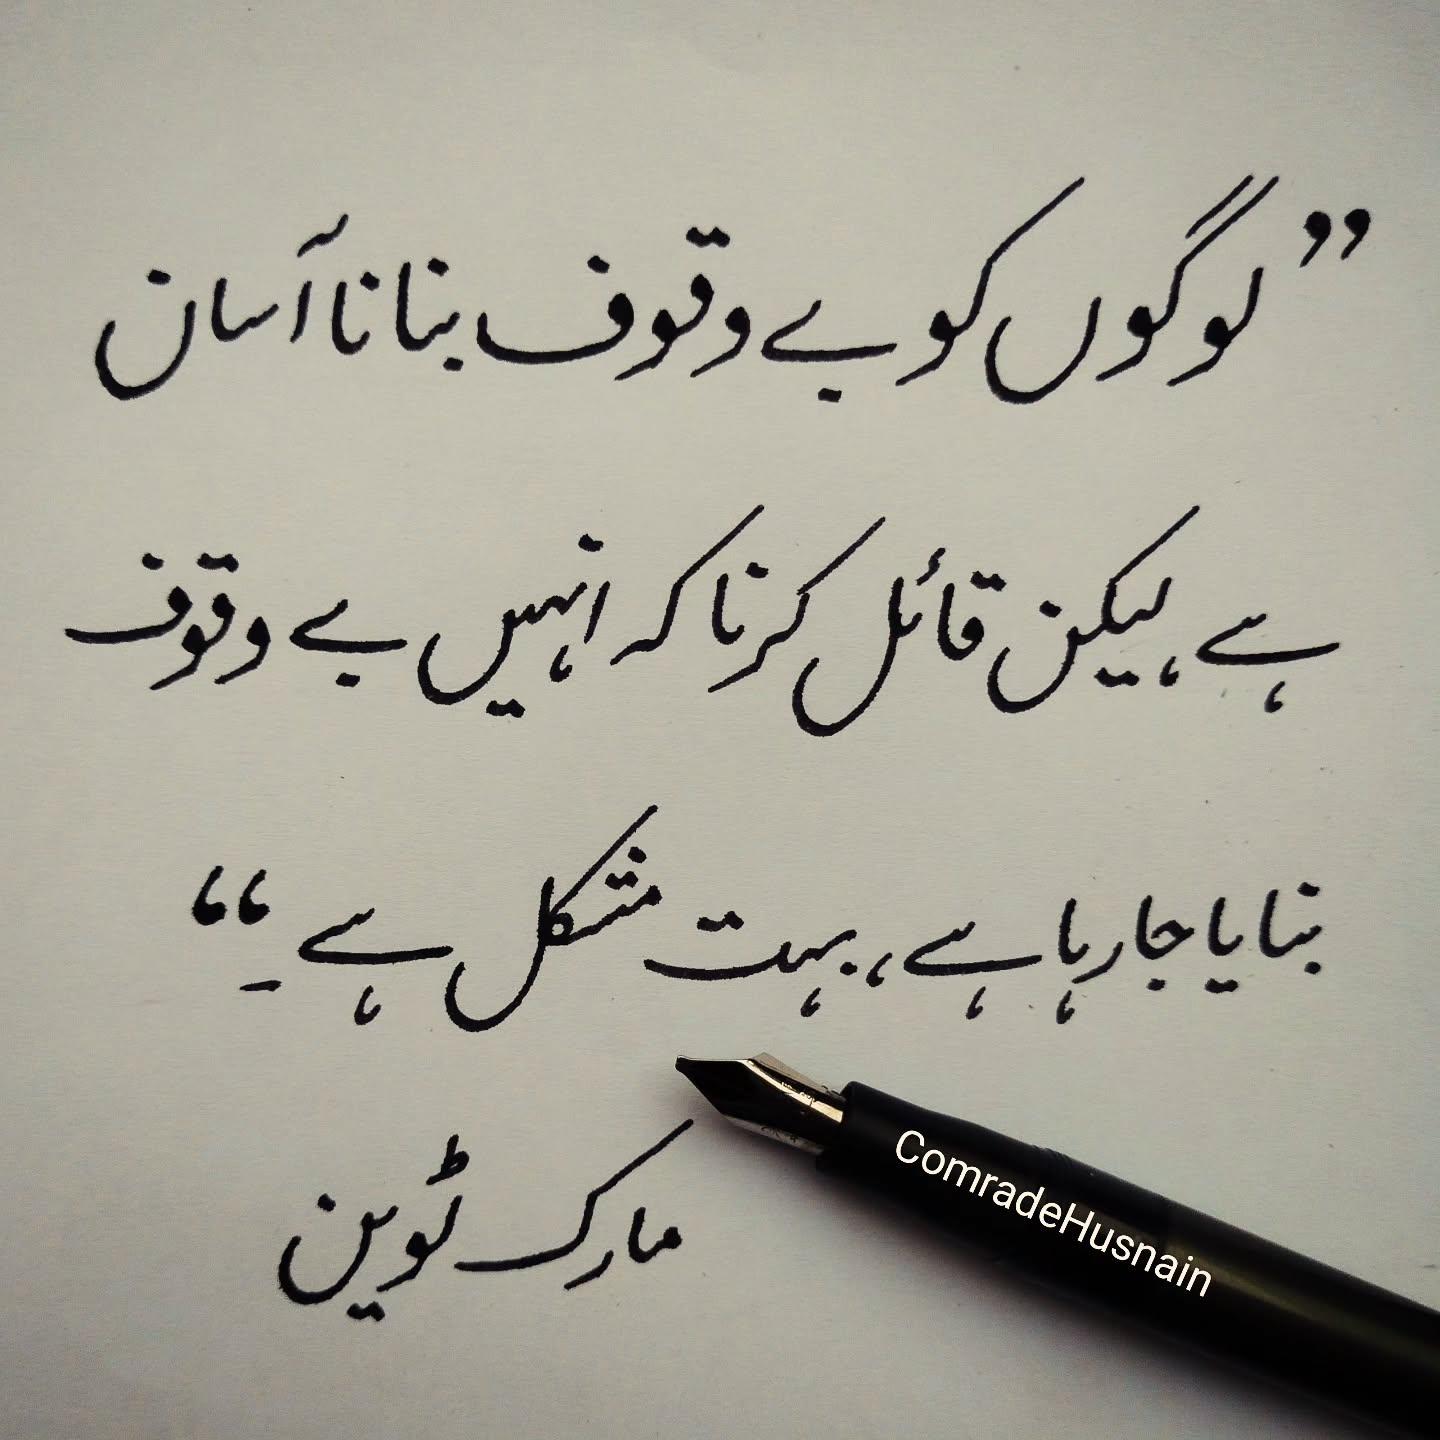 ”لوگوں کو بے وقوف بنانا آسان
ہے، لیکن قائل کرنا کہ انہیں بے وقوف
بنایا جا رہا ہے، بہت مشکل ہے۔“
مارک ٹوین
ComradeHusnain